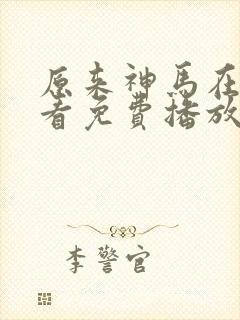 原来神马在
看免費播放
李警官